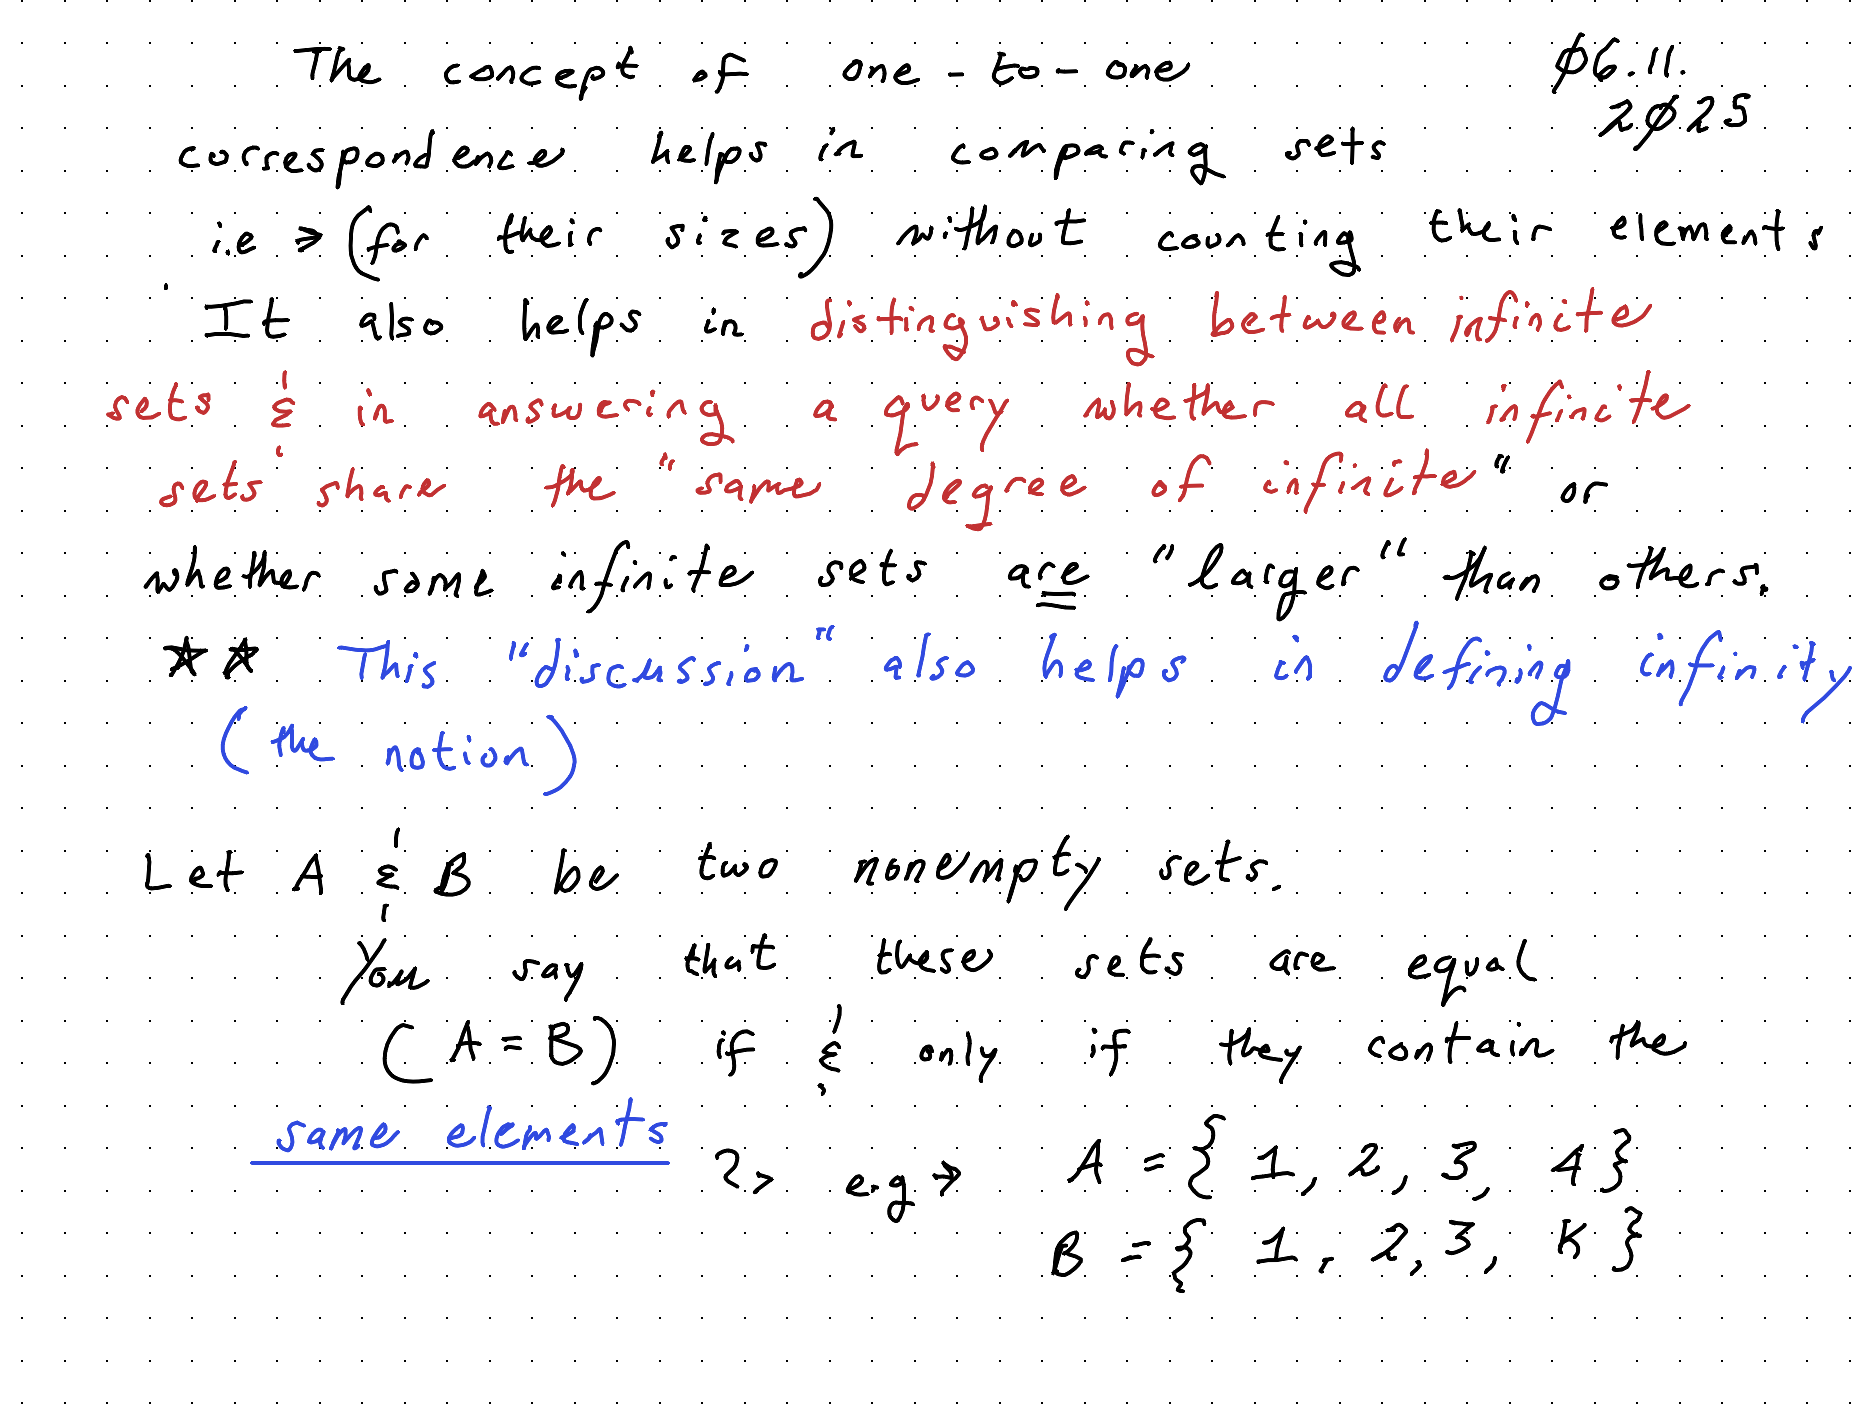 The concept of one-to-one
Ø6.11.
2Ø25
correspondence helps in comparing sets
i.e → (for their sizes) without counting their elements
It also helps in distinguishing between infinite
sets & in answering a query whether all infinite
sets share the "same degree of infinite" or
whether some infinite sets are "larger" than others.
☆☆ This "discussion" also helps in defining infinity
(the notion)
Let A & B be two nonempty sets.
You say that these sets are equal
(A = B) if & only if they contain the
same elements
e.g → A = { 1, 2, 3, 4 }
B = { 1, 2, 3, K }